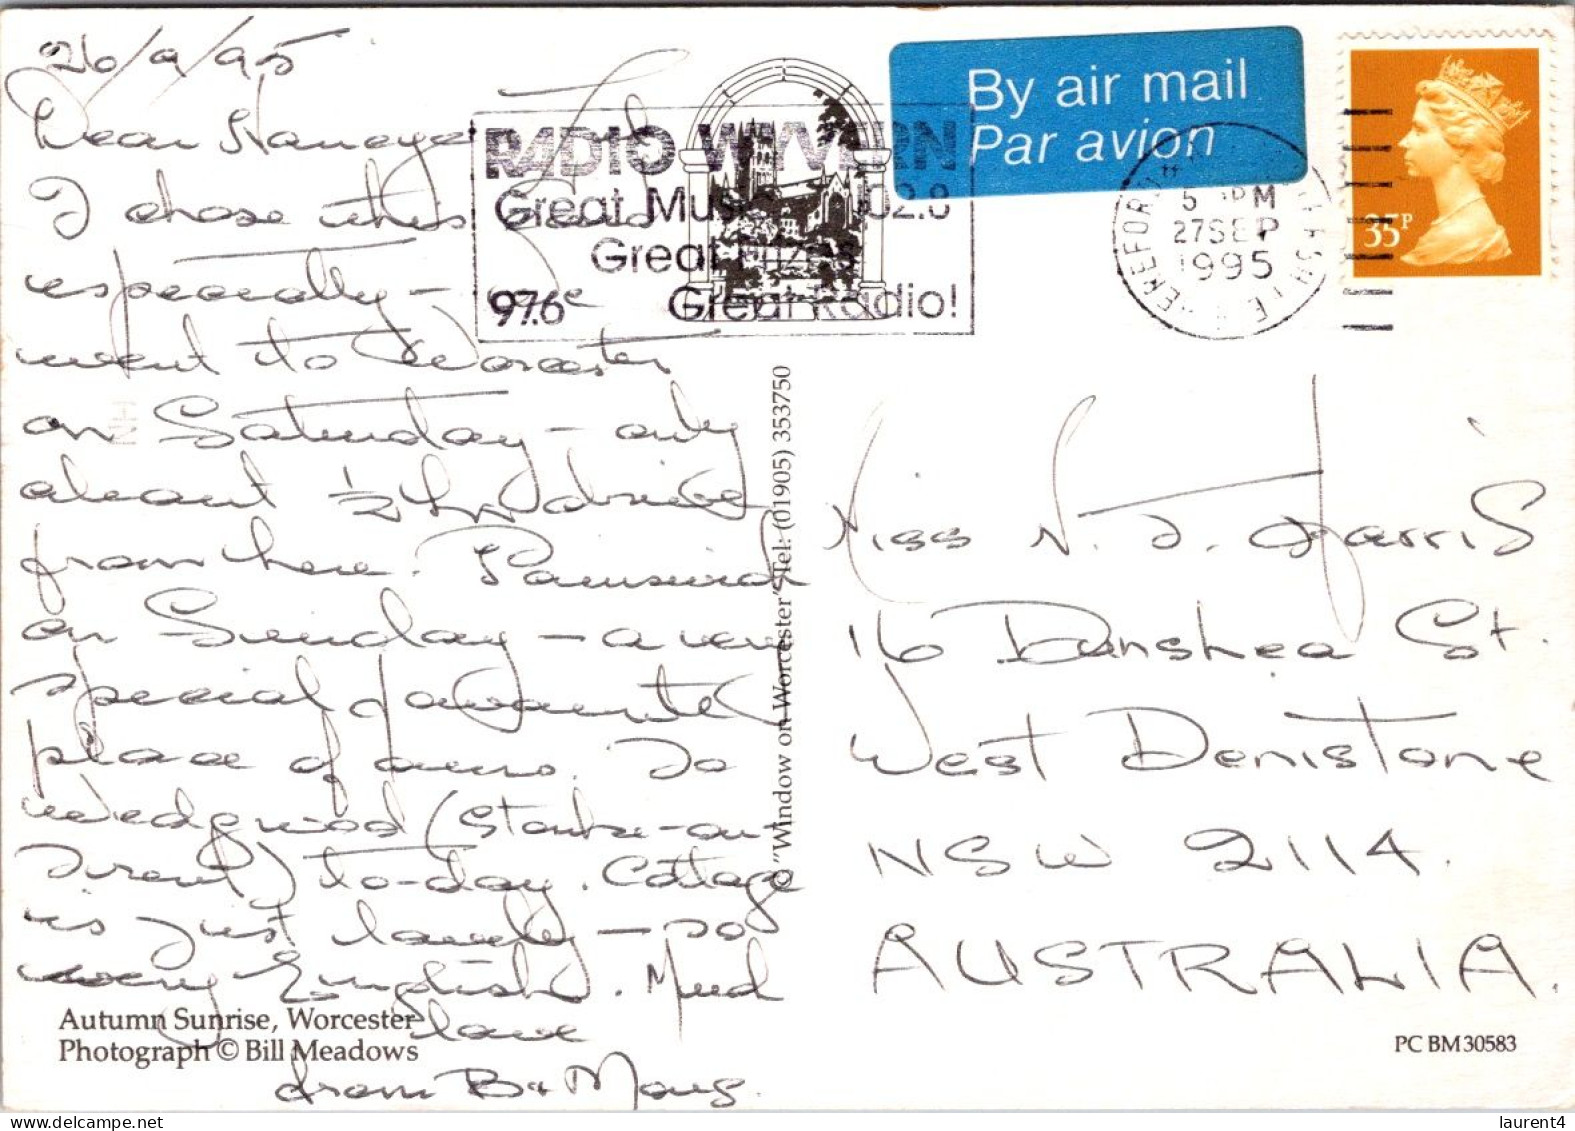 26/9/95
Dear
I chose this card
especially - we
went to Worcester
on Saturday - only
about ½ hr drive
from here. Painswick
on Sunday - a very
special favourite
place of ours. To
Wedgwood (Stoke-on-
Trent) to-day. Cottage
is just lovely - so
very English. Much
love
from B &
Autumn Sunrise, Worcester
Photograph © Bill Meadows
RADIO WYVERN
Great Music 102.8
Great Prizes
97.6 Great Radio!
© "Window on Worcester" Tel: (01905) 353750
By air mail
Par avion
5 PM
27 SEP
1995
35P
Miss N. J. Harris
16 Dunshea St.
West Denistone
NSW 2114.
AUSTRALIA.
PC BM30583
laurent4